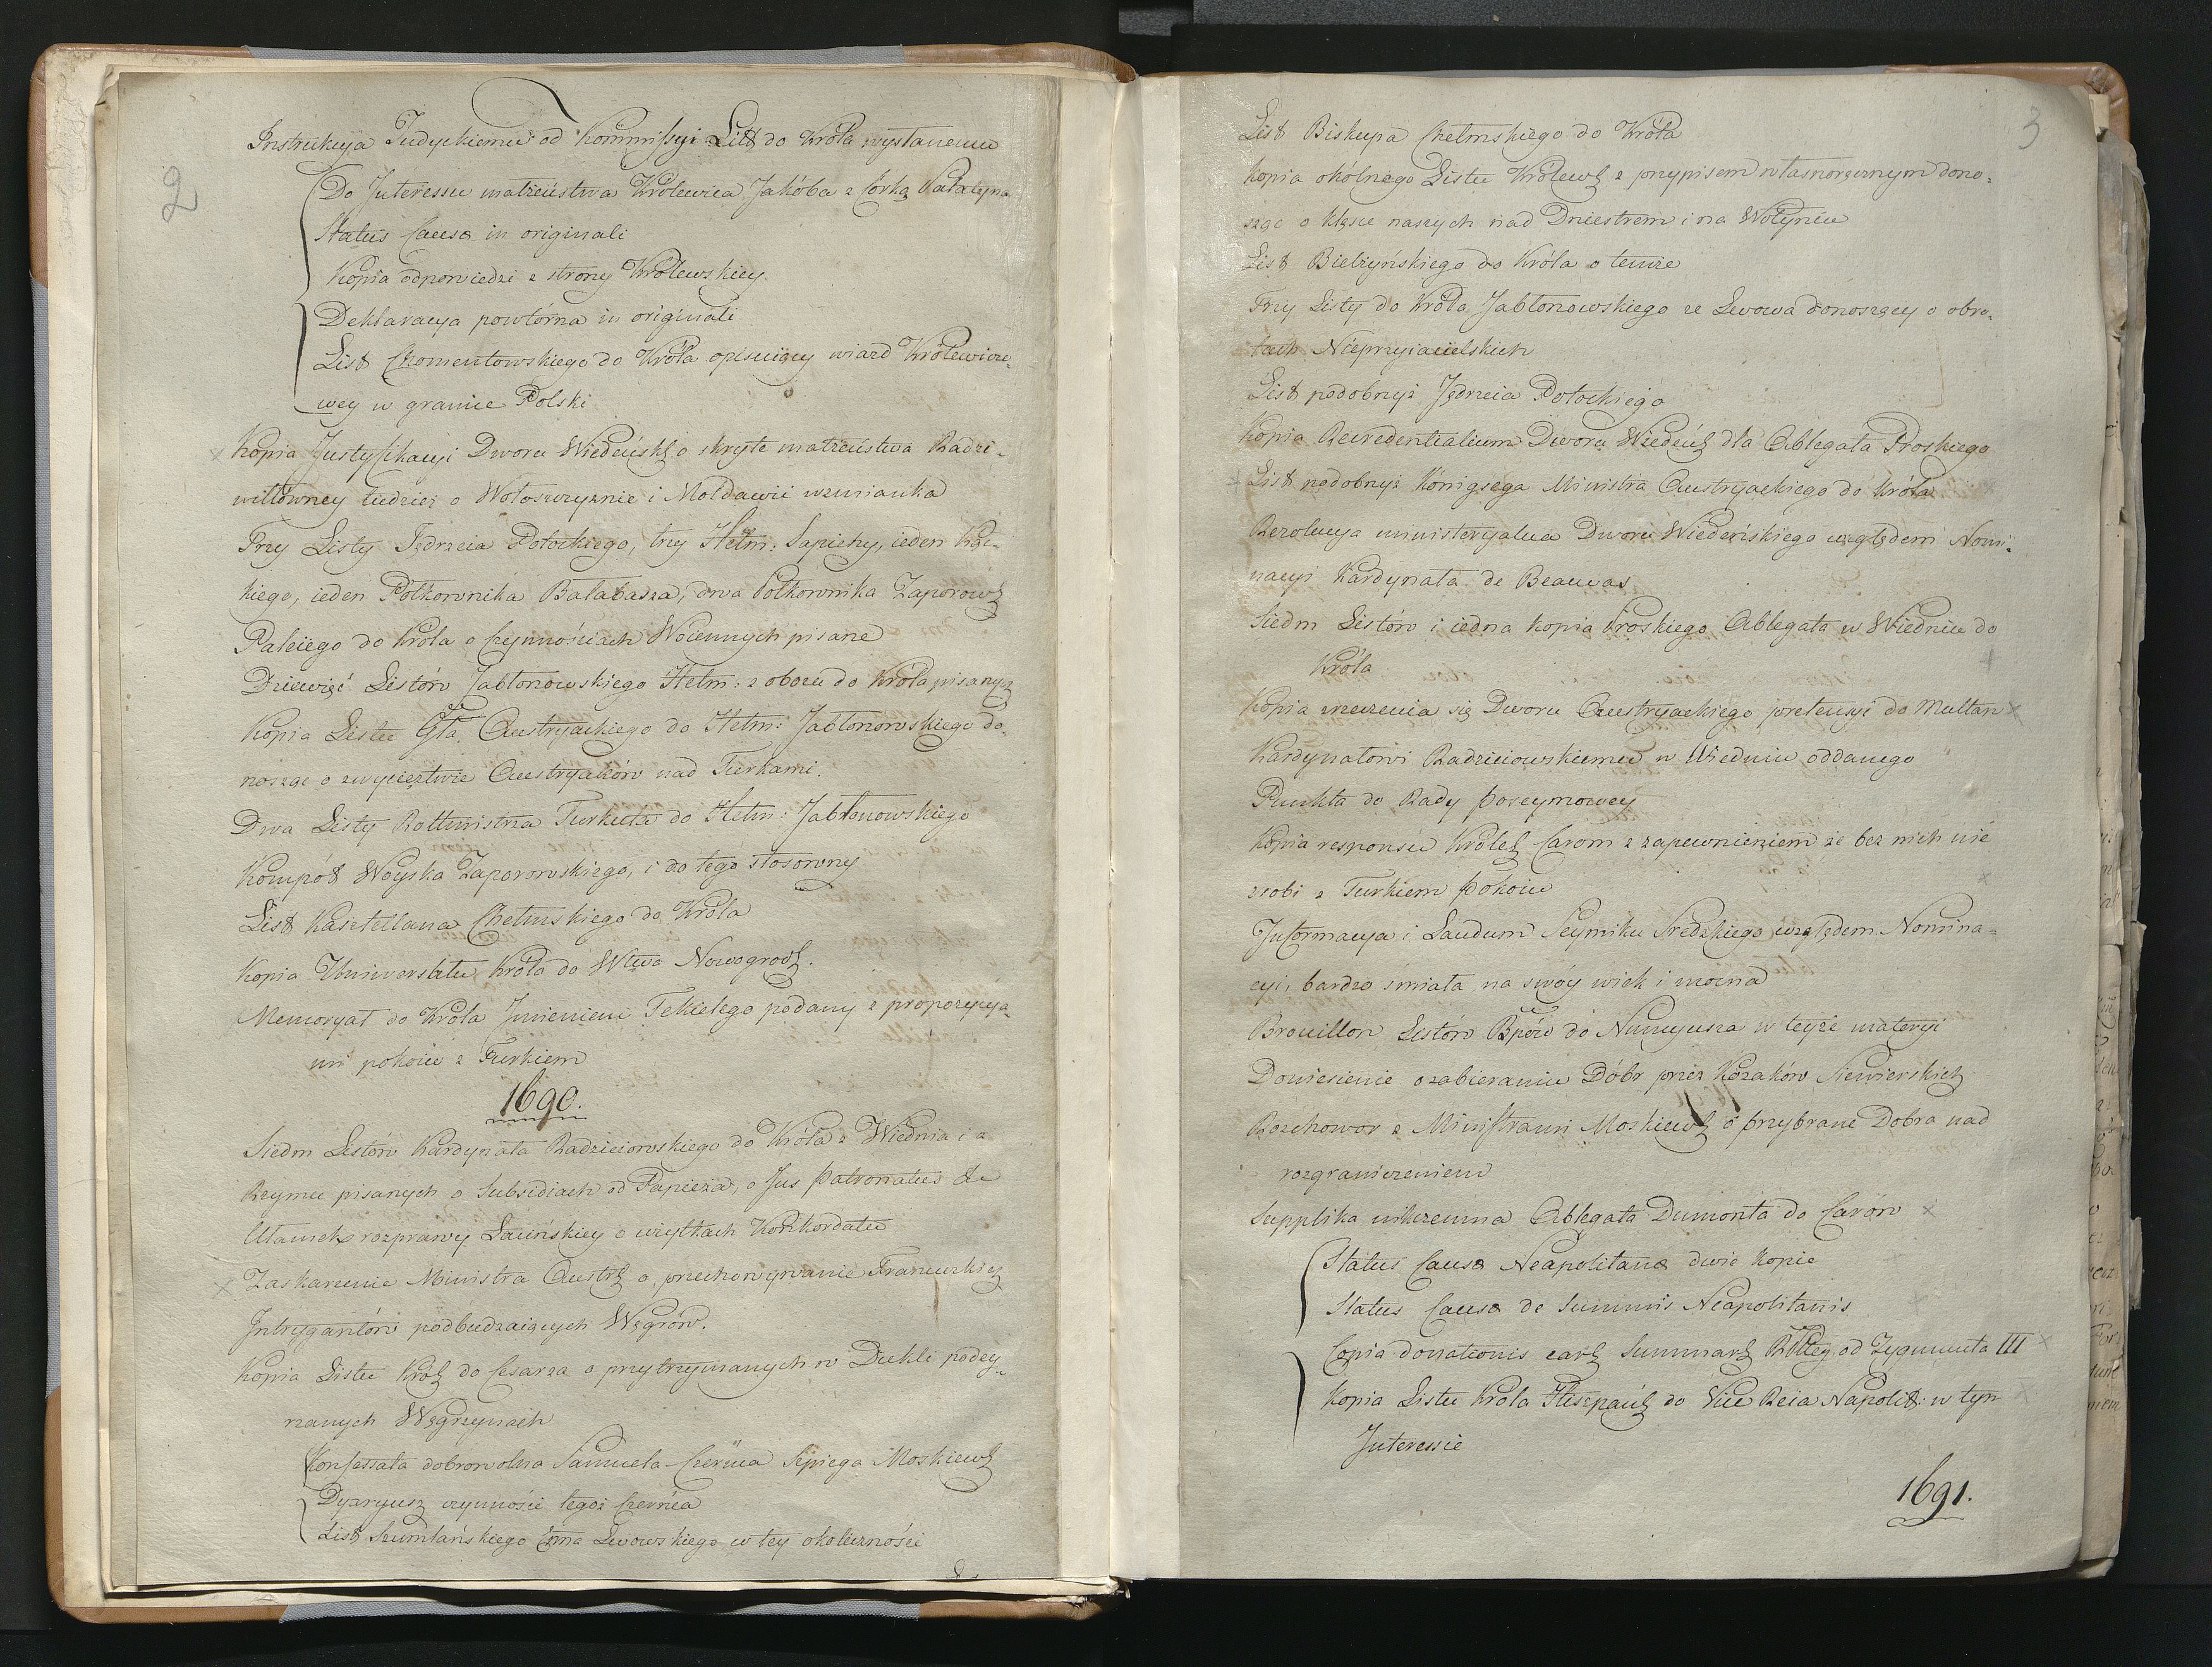 2
Instrukcya Judyckiemu od Kommissyi Litt do Króla wysłanemu
Do Interessu małżeństwa Królewica Jakóba z Córką Palatyna
Status Causæ in originali
Kopia odpowiedzi z strony Królewskiey
Deklaracya powtórna in originali
List Chomentowskiego do Króla opisuiący wiazd Królewico-
wey w granice Polski
Kopia Justyfikacyi Dworu Wiedeńsk o skryte małżeństwa Radzi-
wiłłówney tudzież o Wołoszczyznie i Mołdawii wzmianka
Trzy Listy Jędrzeia Potockiego, trzy Hetm: Sapiehy, ieden Kąc-
kiego, ieden Półkownika Bałabasza, dwa Półkownika Zaporows
Paleiego do Króla o Czynnościach Woiennych pisane
Dziewięć Listów Jabłonowskiego Hetm: z obozu do Króla pisanych
Kopia Listu Gła Austryackiego do Hetm: Jabłonowskiego do-
noszące o zwycięztwie Austryaków nad Turkami.
Dwa Listy Rottmistrza Turkuła do Hetm: Jabłonowskiego
Komput Woyska Zaporowskiego, i do tego stosowny
List Kasztellana Chełmskiego do Króla
Kopia Uniwersału Króla do Wtwa Nowogrods.
Memoryał do Króla Imieniem Tekielego podany z propozycya-
mi pokoiu z Turkiem
1690.
Siedm Listów Kardynała Radzieiowskiego do Króla z Wiednia i z
Rzymu pisanych o Subsidiach od Papieża, o Jus patronatus &c
Ułamek rozprawy Łacińskiey o uzytkach Konkordatu
Zaskarzenie Ministra Austr o przechowywanie Francuzkich
Intrygantów podbudzaiących Węgrów.
Kopia Listu Król do Cesarza o przytrzymanych w Dukli podey-
rzanych Węgrzynach
Konfessata dobrowolna Samuela Czernca Szpiega Moskiews
Dyaryusz czynności tegoż Czernca
List Szumlańskiego Lwowskiego w tey okoliczności
3
List Biskupa Chełmskiego do Króla
Kopia okólnego Listu Królews z przypisem własnoręcznym dono-
szące o klęsce naszych nad Dniestrem i na Wołyniu
List Bielzyńskiego do Króla o temże
Trzy Listy do Króla Jabłonowskiego ze Lwowa donoszący o obro-
tach Nieprzyiacielskich
List podobnyż Jędrzeia Potockiego
Kopia Recredentialium Dworu Wiedeńs dla Ablegata Proskiego
List podobnyż Königsega Ministra Austryackiego do Króla
Rezolucya ministeryalna Dworu Wiedeńskiego względem Nomi-
nacyi Kardynała de Beauvas
Siedm Listów i iedna kopia Proskiego Ablegata w Wiedniu do
Króla
Kopia zrzeczenia się Dworu Austryackiego pretensyi do Multan
Kardynałowi Radzieiowskiemu w Wiedniu oddanego
Punkta do Rady poseymowey
Kopia responsu Króles Carom z zapewnieniem ze bez nich nie
zrobi z Turkiem pokoiu
Informacya i Laudum Seymiku Sredzkiego względem Nomina-
cyi, bardzo śmiała na swóy wiek i mocna
Brouillon Listów Bpów do Nuncyusza w teyże materyi
Doniesienie o zabieraniu Dóbr przez Kozaków Siewierskich
Rozchowor z Ministrami Moskiews o przybrane Dobra nad
rozgraniczeniem
Supplika nikczemna Ablegata Dumonta do Carów
Status Causæ Neapolitanæ dwie kopie
Status Causæ de Summis Neapolitanis
Copia donationis earz Summarz Rttey od Zygmunta III
Kopia Listu Króla Hiszpańs do Vice Reia Napolit: w tym
Interessie
1691.